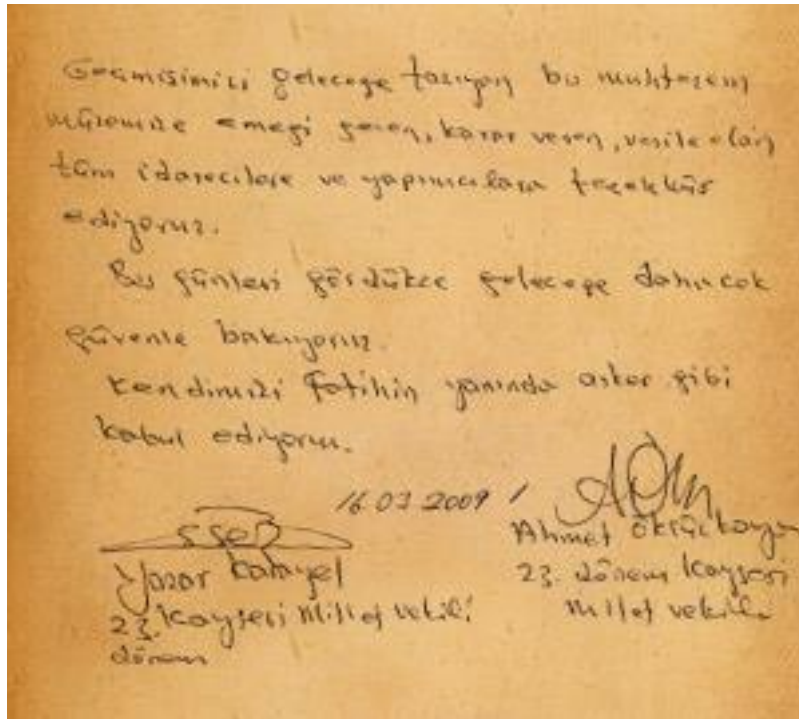 Geçmişimizi geleceğe taşıyan bu muhteşem
müzemize emeği geçen, karar veren, vesile olan
tüm idarecilere ve yapımcılara teşekkür
ediyoruz.
Bu günleri gördükçe geleceğe daha çok
güvenle bakıyoruz.
Kendimizi Fatihin yanında asker gibi
kabul ediyoruz.
16.03.2009
Yaşar Karayel
23. Kayseri Milletvekili
dönem
Ahmet Öksüzkaya
23. dönem Kayseri
Milletvekili